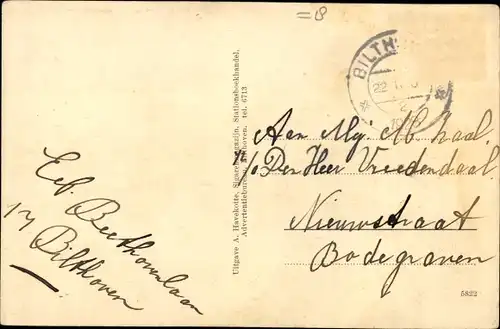 =8
BILTH
22
Aan Mej. M. Kraal
p/o Den Heer Vreedendaal
Nieuwstraat
Bodegraven
Uitgave A. Havekotte, Sigarenmagazijn, Stationsboekhandel,
Advertentiebureau, Bilthoven. tel. 6713
Beethovenlaan
17 Bilthoven
5822